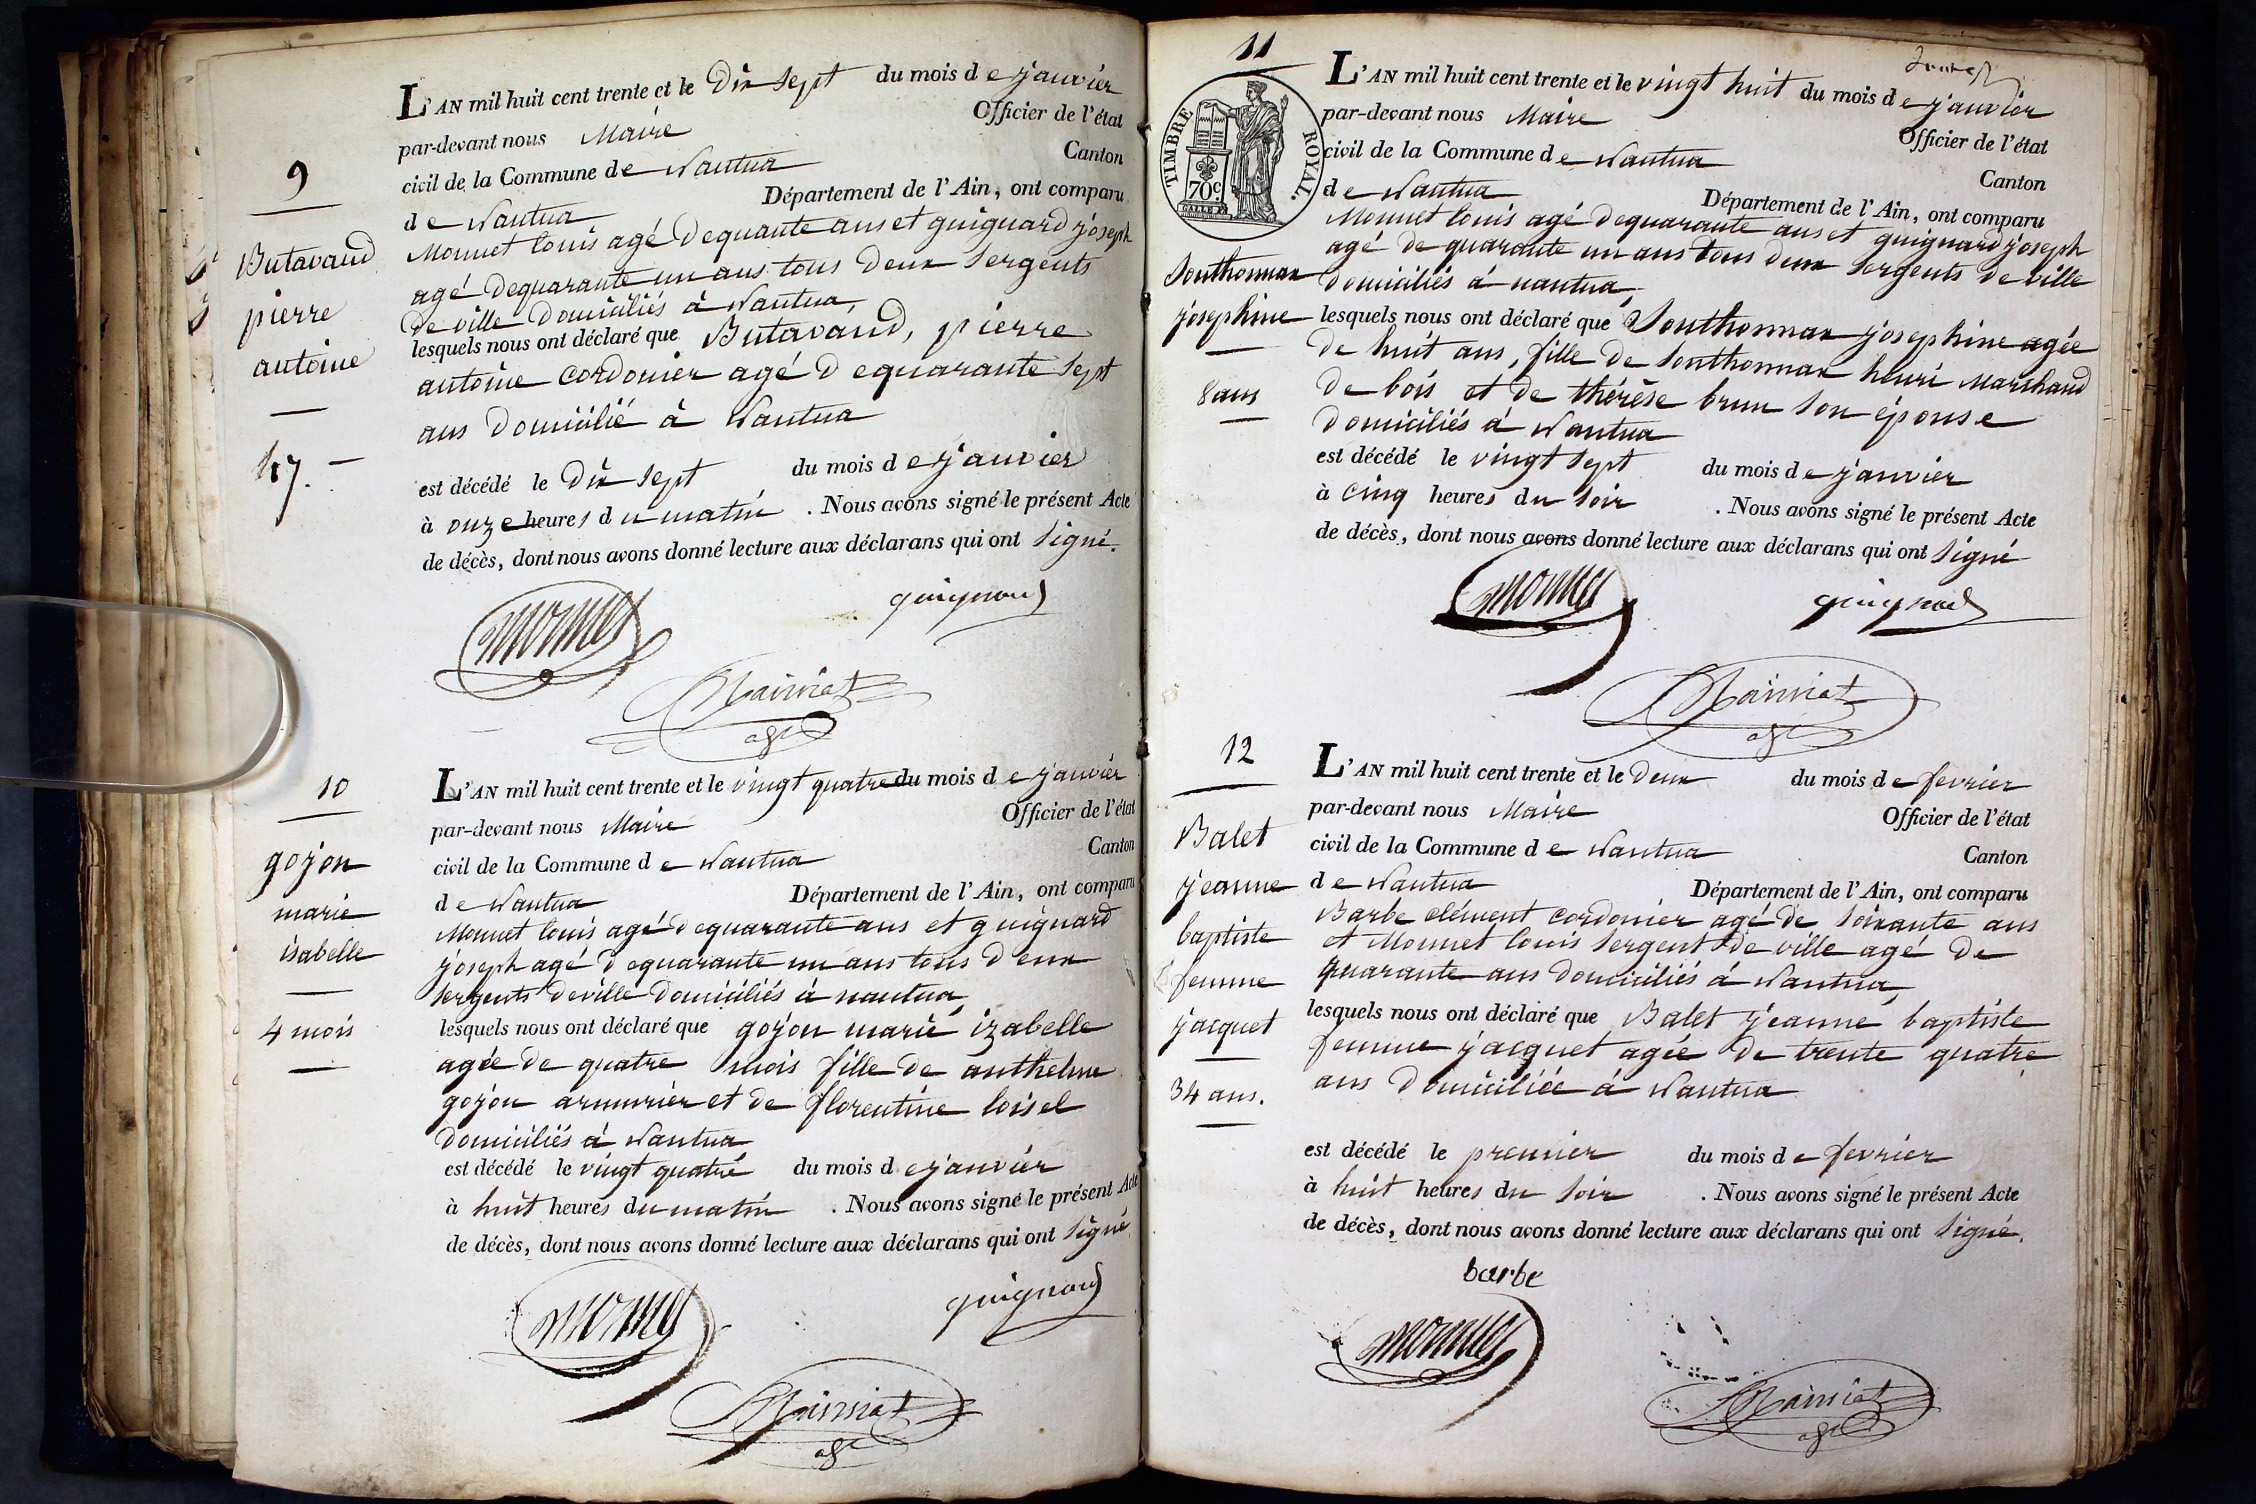 9
Butavand
pierre
antoine
47.
L'AN mil huit cent trente et le Dix sept du mois de janvier
par-devant nous Maire Officier de l'état
civil de la Commune de Nantua Canton
de Nantua Département de l'Ain, ont comparu
Monnet louis agé de quarante ans et guignard joseph
agé de quarante un ans tous deux sergents
de ville domiciliés à Nantua,
lesquels nous ont déclaré que Butavand, pierre
antoine cordonier agé de quarante sept
ans domicilié à Nantua
est décédé le Dix sept du mois de janvier
à onze heures du matin . Nous avons signé le présent Acte
de décès, dont nous avons donné lecture aux déclarans qui ont signé.
monnet guignard
10
gojon
marie
isabelle
4 mois
L'AN mil huit cent trente et le vingt quatre du mois de janvier
par-devant nous Maire Officier de l'état
civil de la Commune de Nantua Canton
de Nantua Département de l'Ain, ont comparu
Monnet louis agé de quarante ans et guignard
joseph agé de quarante un ans tous deux
sergents de ville domiciliés à nantua,
lesquels nous ont déclaré que gojon marie izabelle
agée de quatre mois fille de anthelme
gojon armurier et de florentine loisel
domiciliés à Nantua
est décédé le vingt quatre du mois de janvier
à huit heures du matin . Nous avons signé le présent Acte
de décès, dont nous avons donné lecture aux déclarans qui ont signé
monnet guignard
11
TIMBRE ROYAL.
70 c.
Southonnax
josephine
8 ans
L'AN mil huit cent trente et le vingt huit du mois de janvier
par-devant nous Maire Officier de l'état
civil de la Commune de Nantua Canton
de Nantua Département de l'Ain, ont comparu
Monnet louis agé de quarante ans et guignard joseph
agé de quarante un ans tous deux sergents de ville
domiciliés à nantua,
lesquels nous ont déclaré que Southonnax josephine agée
de huit ans, fille de Southonnax henri Marchand
de bois et de thérèse brun son épouse
domiciliés à Nantua
est décédé le vingt sept du mois de janvier
à cinq heures du soir . Nous avons signé le présent Acte
de décès, dont nous avons donné lecture aux déclarans qui ont signé
monnet guignard
12
Balet
jeanne
baptiste
femme
jacquet
34 ans.
L'AN mil huit cent trente et le deux du mois de fevrier
par-devant nous Maire Officier de l'état
civil de la Commune de Nantua Canton
de Nantua Département de l'Ain, ont comparu
Barbe clément cordonier agé de soixante ans
et Monnet louis sergent de ville agé de
quarante ans domiciliés à Nantua,
lesquels nous ont déclaré que Balet jeanne baptiste
femme jacquet agée de trente quatre
ans domiciliée à Nantua
est décédé le premier du mois de fevrier
à huit heures du soir . Nous avons signé le présent Acte
de décès, dont nous avons donné lecture aux déclarans qui ont signé.
barbe
monnet